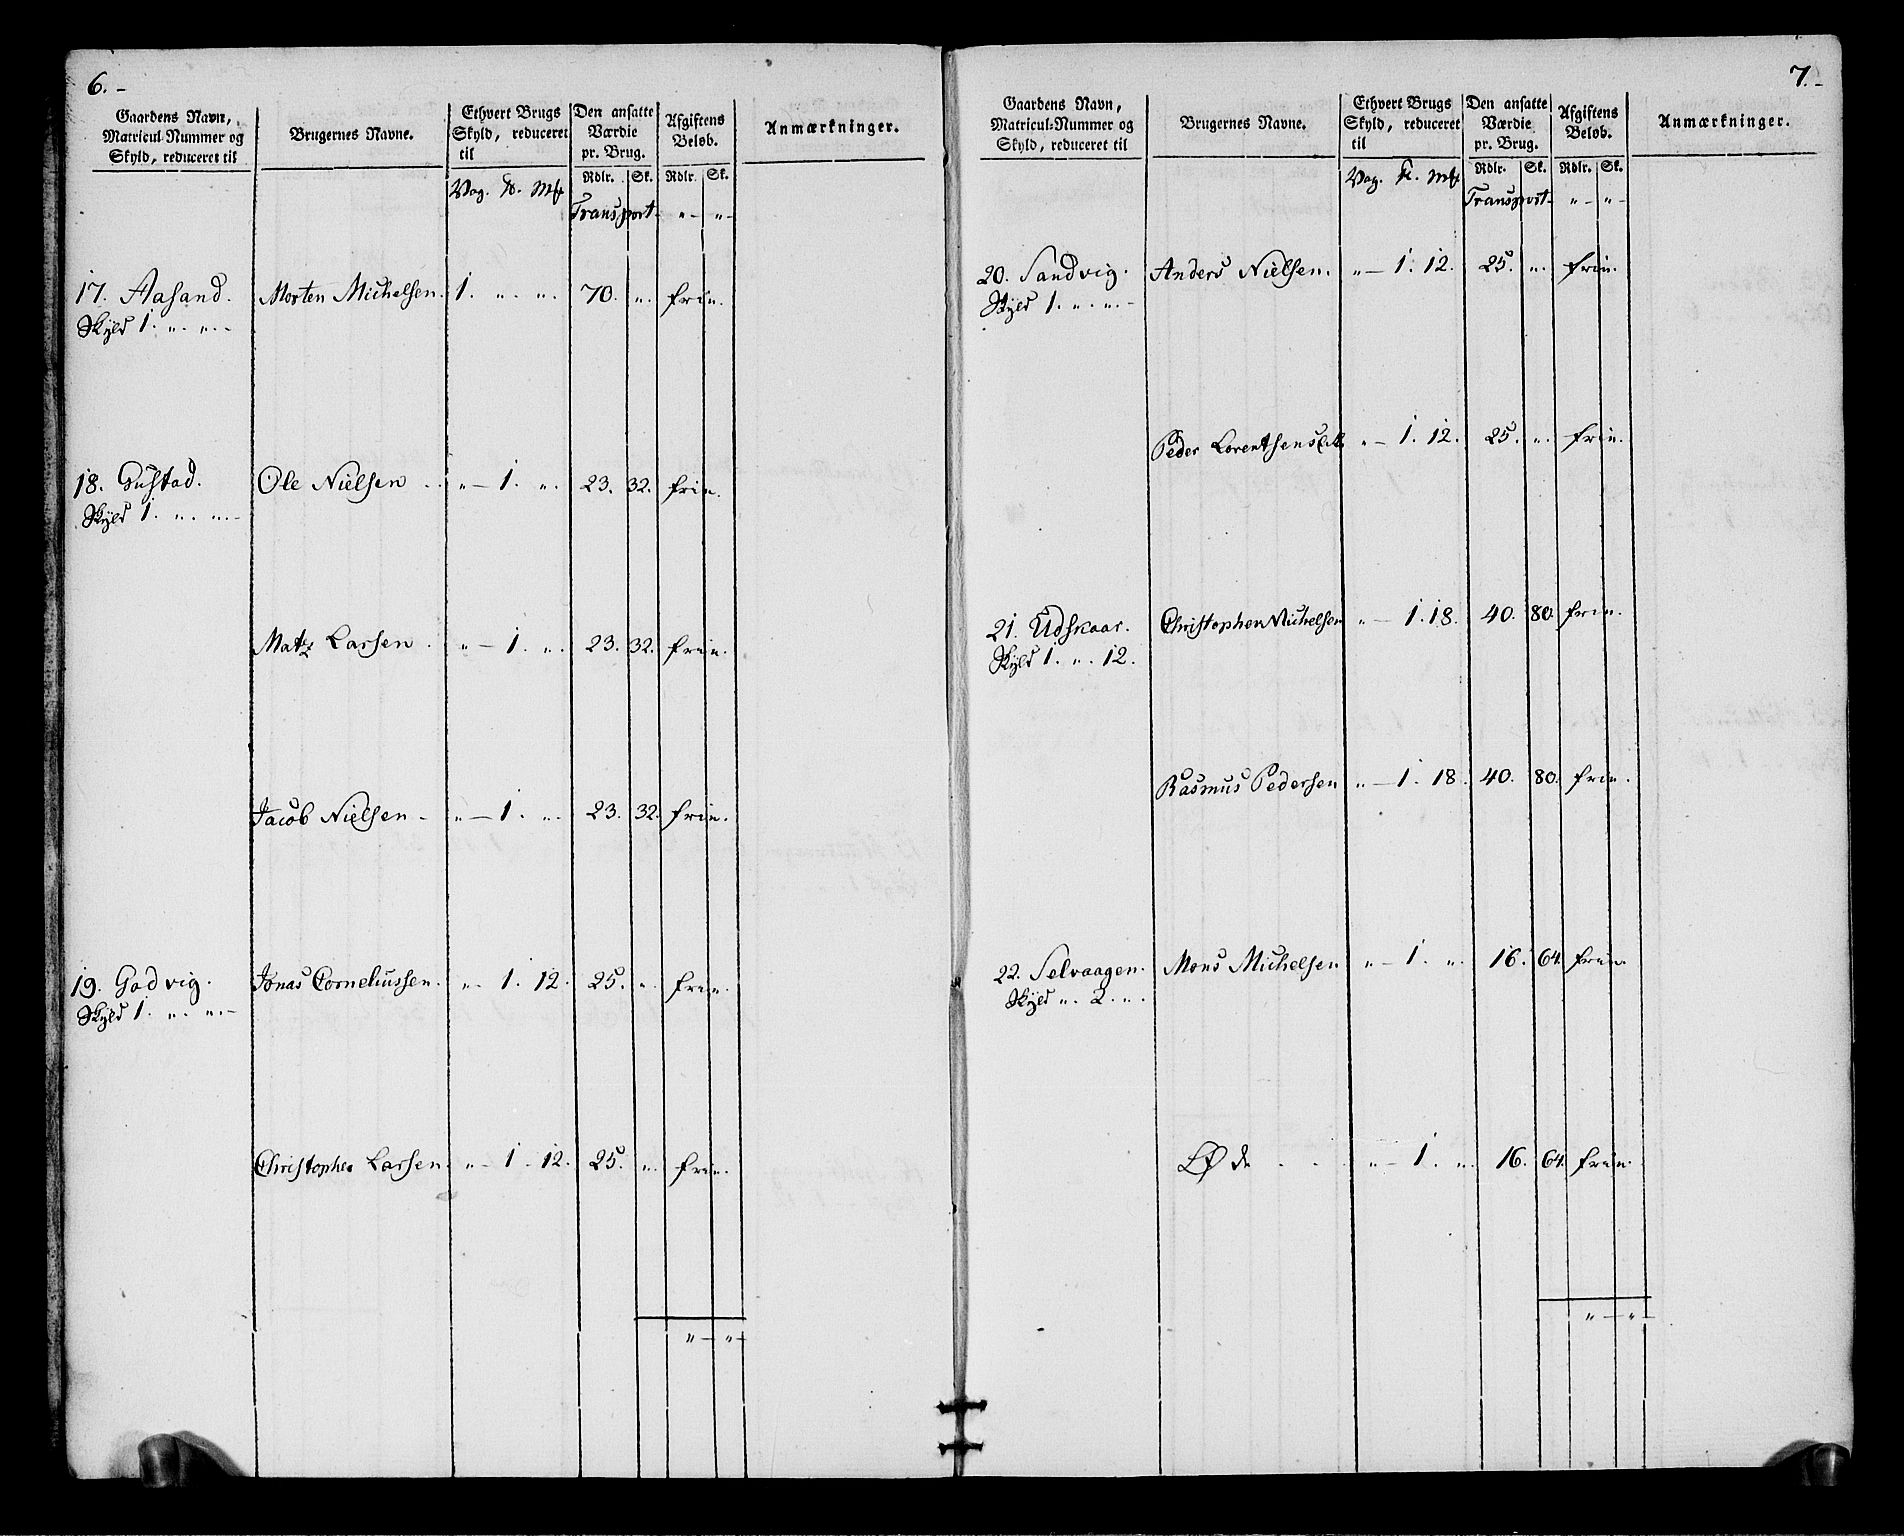 6. -
Gaardens Navn, Matricul-Nummer og Skyld, reduceret til
Brugernes Navne.
Ethvert Brugs Skyld, reduceret til
Den ansatte Værdie pr. Brug.
Afgiftens Beløb.
Anmærkninger.
Vog. Mk Rdlr. Sk. Rdlr. Sk.
Transport - „ - „ -
17. Aasand. Morten Michelsen. 1. „. „. 70. „. frie.
Skyld 1. „. „. -
18. Gustad. Ole Nielsen . . „ - 1. „. 23. 32. frie.
Skyld 1. „. „. -
Matz Larsen . „ - 1. „. 23. 32. frie.
Jacob Nielsen - „ - 1. „. 23. 32. frie.
19. Godvig. Jonas Corneliussen. „ - 1. 12. 25. „. frie.
Skyld 1. „. „. -
Christopher Larsen. „ - 1. 12. 25. „. frie.
„ - „ -
7. -
Gaardens Navn, Matricul-Nummer og Skyld, reduceret til
Brugernes Navne.
Ethvert Brugs Skyld, reduceret til
Den ansatte Værdie pr. Brug.
Afgiftens Beløb.
Anmærkninger.
Vog. Mk Rdlr. Sk. Rdlr. Sk.
Transport - „ - „ -
20. Sandvig. Anders Nielsen. „ - 1. 12. 25. „. frie.
Skyld 1. „. „. -
Peder Lorentsens „ - 1. 12. 25. „. frie.
21. Udskaar. Christopher Michelsen „ - 1. 18. 40. 80. frie.
Skyld 1. „. 12.
Rasmus Pedersen „ - 1. 18. 40. 80. frie.
22. Selvaagen. Mons Michelsen „ - 1. „. 16. 64. frie.
Skyld „. 2. „.
Øde . . . „ - 1. „. 16. 64. frie.
„ - „ -